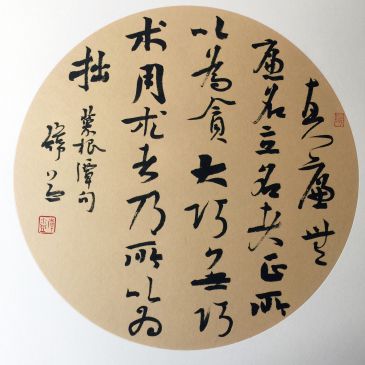 真廉無
廉名立名者正所
以為貪大巧無巧
术用术者乃所以为
拙
菜根譚句